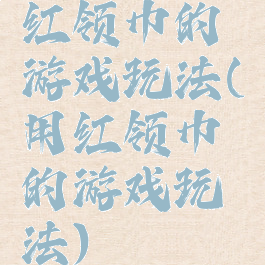 红领巾的
游戏玩法(
用红领巾
的游戏玩
法)